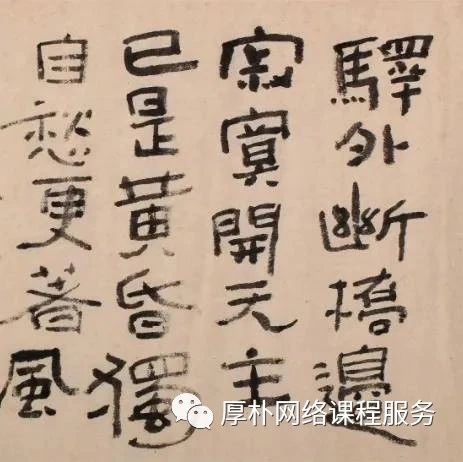 驛外斷橋邊
寂寞開无主
已是黃昏獨
自愁更著風
厚朴网络课程服务